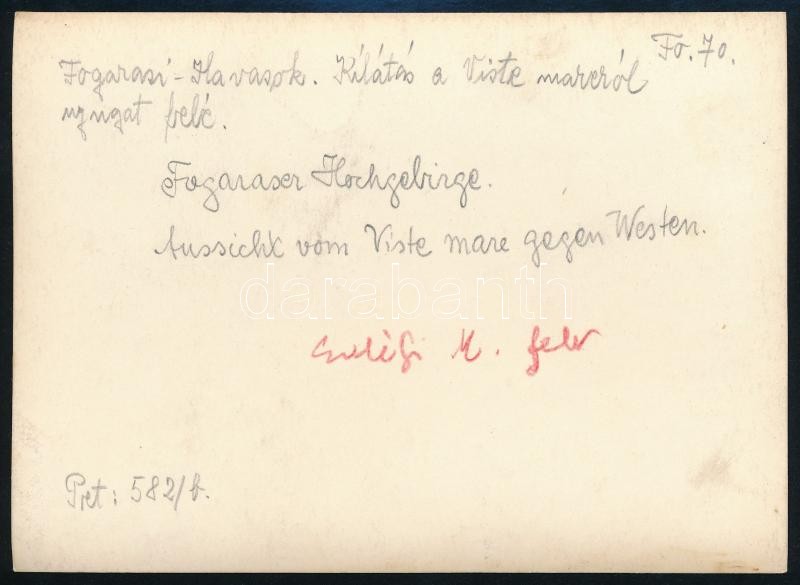 Fo. 70.
Fogarasi-Havasok. Kilátás a Viste mareról
nyugat felé.
Fogaraser Hochgebirge.
Aussicht vom Viste mare gegen Westen.
darabanth
M. felv
Pret: 582/b.